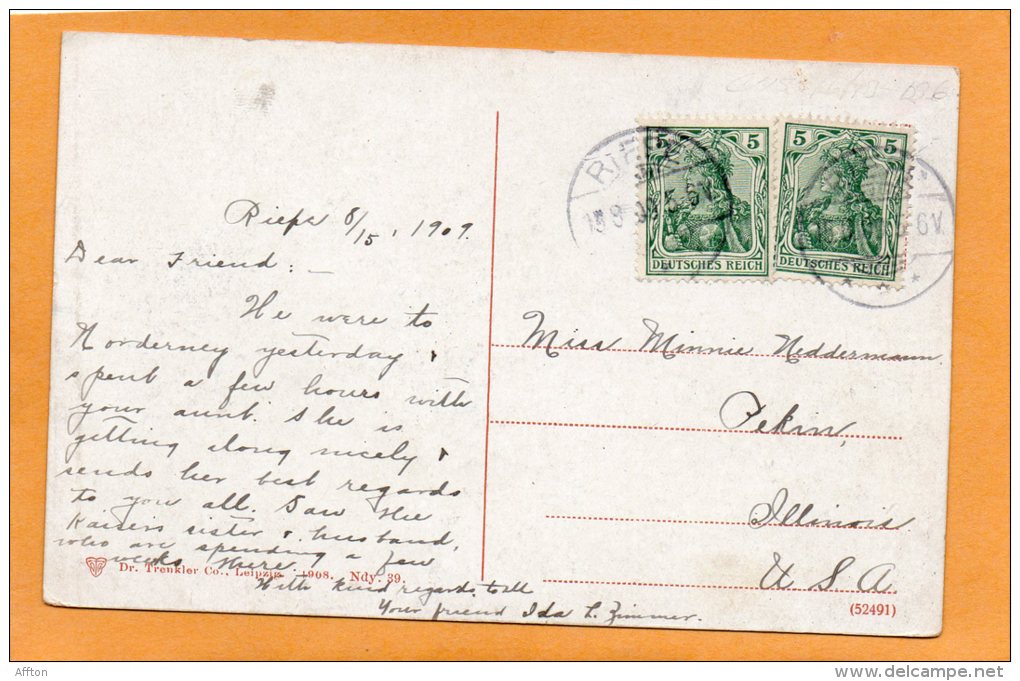 5 5 5 5
DEUTSCHES REICH DEUTSCHES REICH
6V.
Rieps 8/15, 1909.
Dear Friend: –
We were to
Norderney yesterday &
spent a few hours with
your aunt. She is
getting along nicely &
sends her best regards
to you all. Saw the
Kaisers sister & husband,
who are spending a few
weeks there.
With kind regards to all
Your friend Ida L. Zimmer.
Miss Minnie Neddermann.
Pekin,
Illinois
U. S. A.
Dr. Trenkler Co., Leipzig. 1908. Ndy. 39.
(52491)
Affton
www.delcampe.net